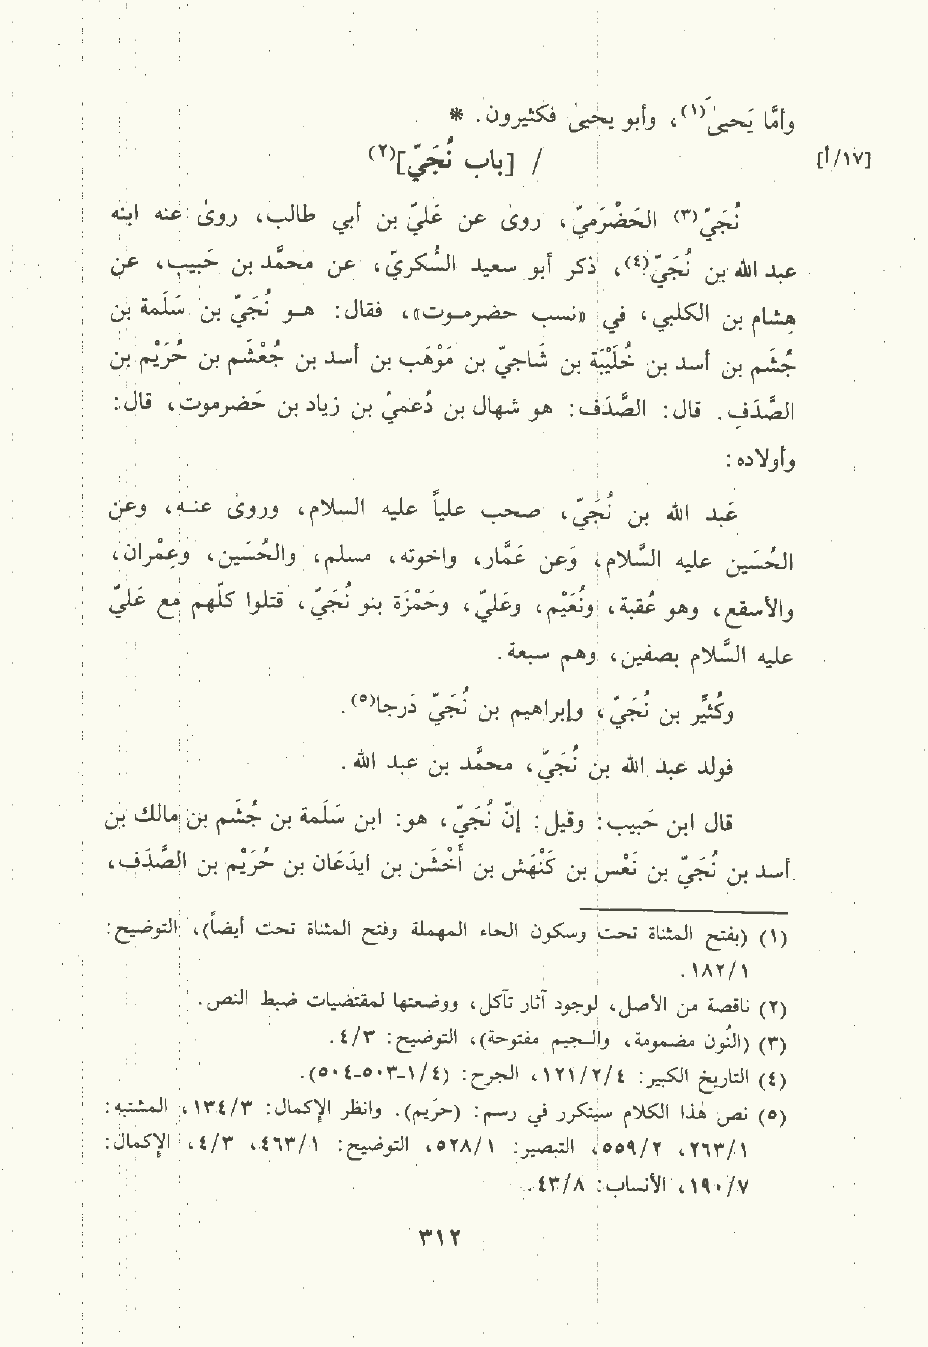 وأمَّا يَحيىٰ(١)، وأبو يحيىٰ فكثيرون. *
[١٧/أ] / [باب نُجَيّ](٢)
نُجَيّ(٣) الحَضْرَميّ، روىٰ عن عَليّ بن أبي طالب، روىٰ عنه ابنه
عبد الله بن نُجَيّ(٤)، ذكر أبو سعيد السُّكريّ، عن محمَّد بن حَبيب، عن
هِشام بن الكلبي، في «نسب حضرمـوت»، فقال: هـو نُجَيّ بن سَلَمة بن
جُشَم بن أسد بن خُلَيْبَة بن شَاجيّ بن مَوْهَب بن أسد بن جُعْشَم بن حُرَيْم بن
الصَّدَفِ. قال: الصَّدَف: هو شهال بن دُعميّ بن زياد بن حَضرموت، قال:
وأولاده:
عَبد الله بن نُجَيّ، صحب علياً عليه السلام، وروىٰ عنـه، وعن
الحُسَين عليه السَّلام، وَعن عَمَّار، واخوته، مسلم، والحُسَين، وعِمْران،
والأسقع، وهو عُقبة، ونُعَيْم، وعَليّ، وحَمْزة بنو نُجَيّ، قتلوا كلّهم مع عَليّ
عليه السَّلام بصفين، وهم سبعة.
وكُثيِّر بن نُجَيّ، وإبراهيم بن نُجَيّ دَرجا(٥).
فولد عبد الله بن نُجَيّ، محمَّد بن عبد الله.
قال ابن حَبيب: وقيل: إنّ نُجَيّ، هو: ابن سَلَمة بن جُشَم بن مالك بن
أسد بن نُجَيّ بن نَعْس بن كَنْهَش بن أَخْشَن بن ايدَعَان بن حُرَيْم بن الصَّدَف،
(١) (بفتح المثناة تحت وسكون الحاء المهملة وفتح المثناة تحت أيضاً)، التوضيح:
١٨٢/١.
(٢) ناقصة من الأصل، لوجود آثار تآكل، ووضعتها لمقتضيات ضبط النص.
(٣) (النُون مضمومة، والـجيم مفتوحة)، التوضيح: ٤/٣.
(٤) التاريخ الكبير: ١٢١/٢/٤، الجرح: (٤/١-٥٠٣-٥٠٤).
(٥) نص هَذا الكلام سيتكرر في رسم: (حَريم). وانظر الإكمال: ١٣٤/٣، المشتبه:
٢٦٣/١، ٥٥٩/٢، التبصير: ٥٢٨/١، التوضيح: ٤٦٣/١، ٤/٣، الإكمال:
١٩٠/٧، الأنساب: ٤٣/٨.
٣١٢